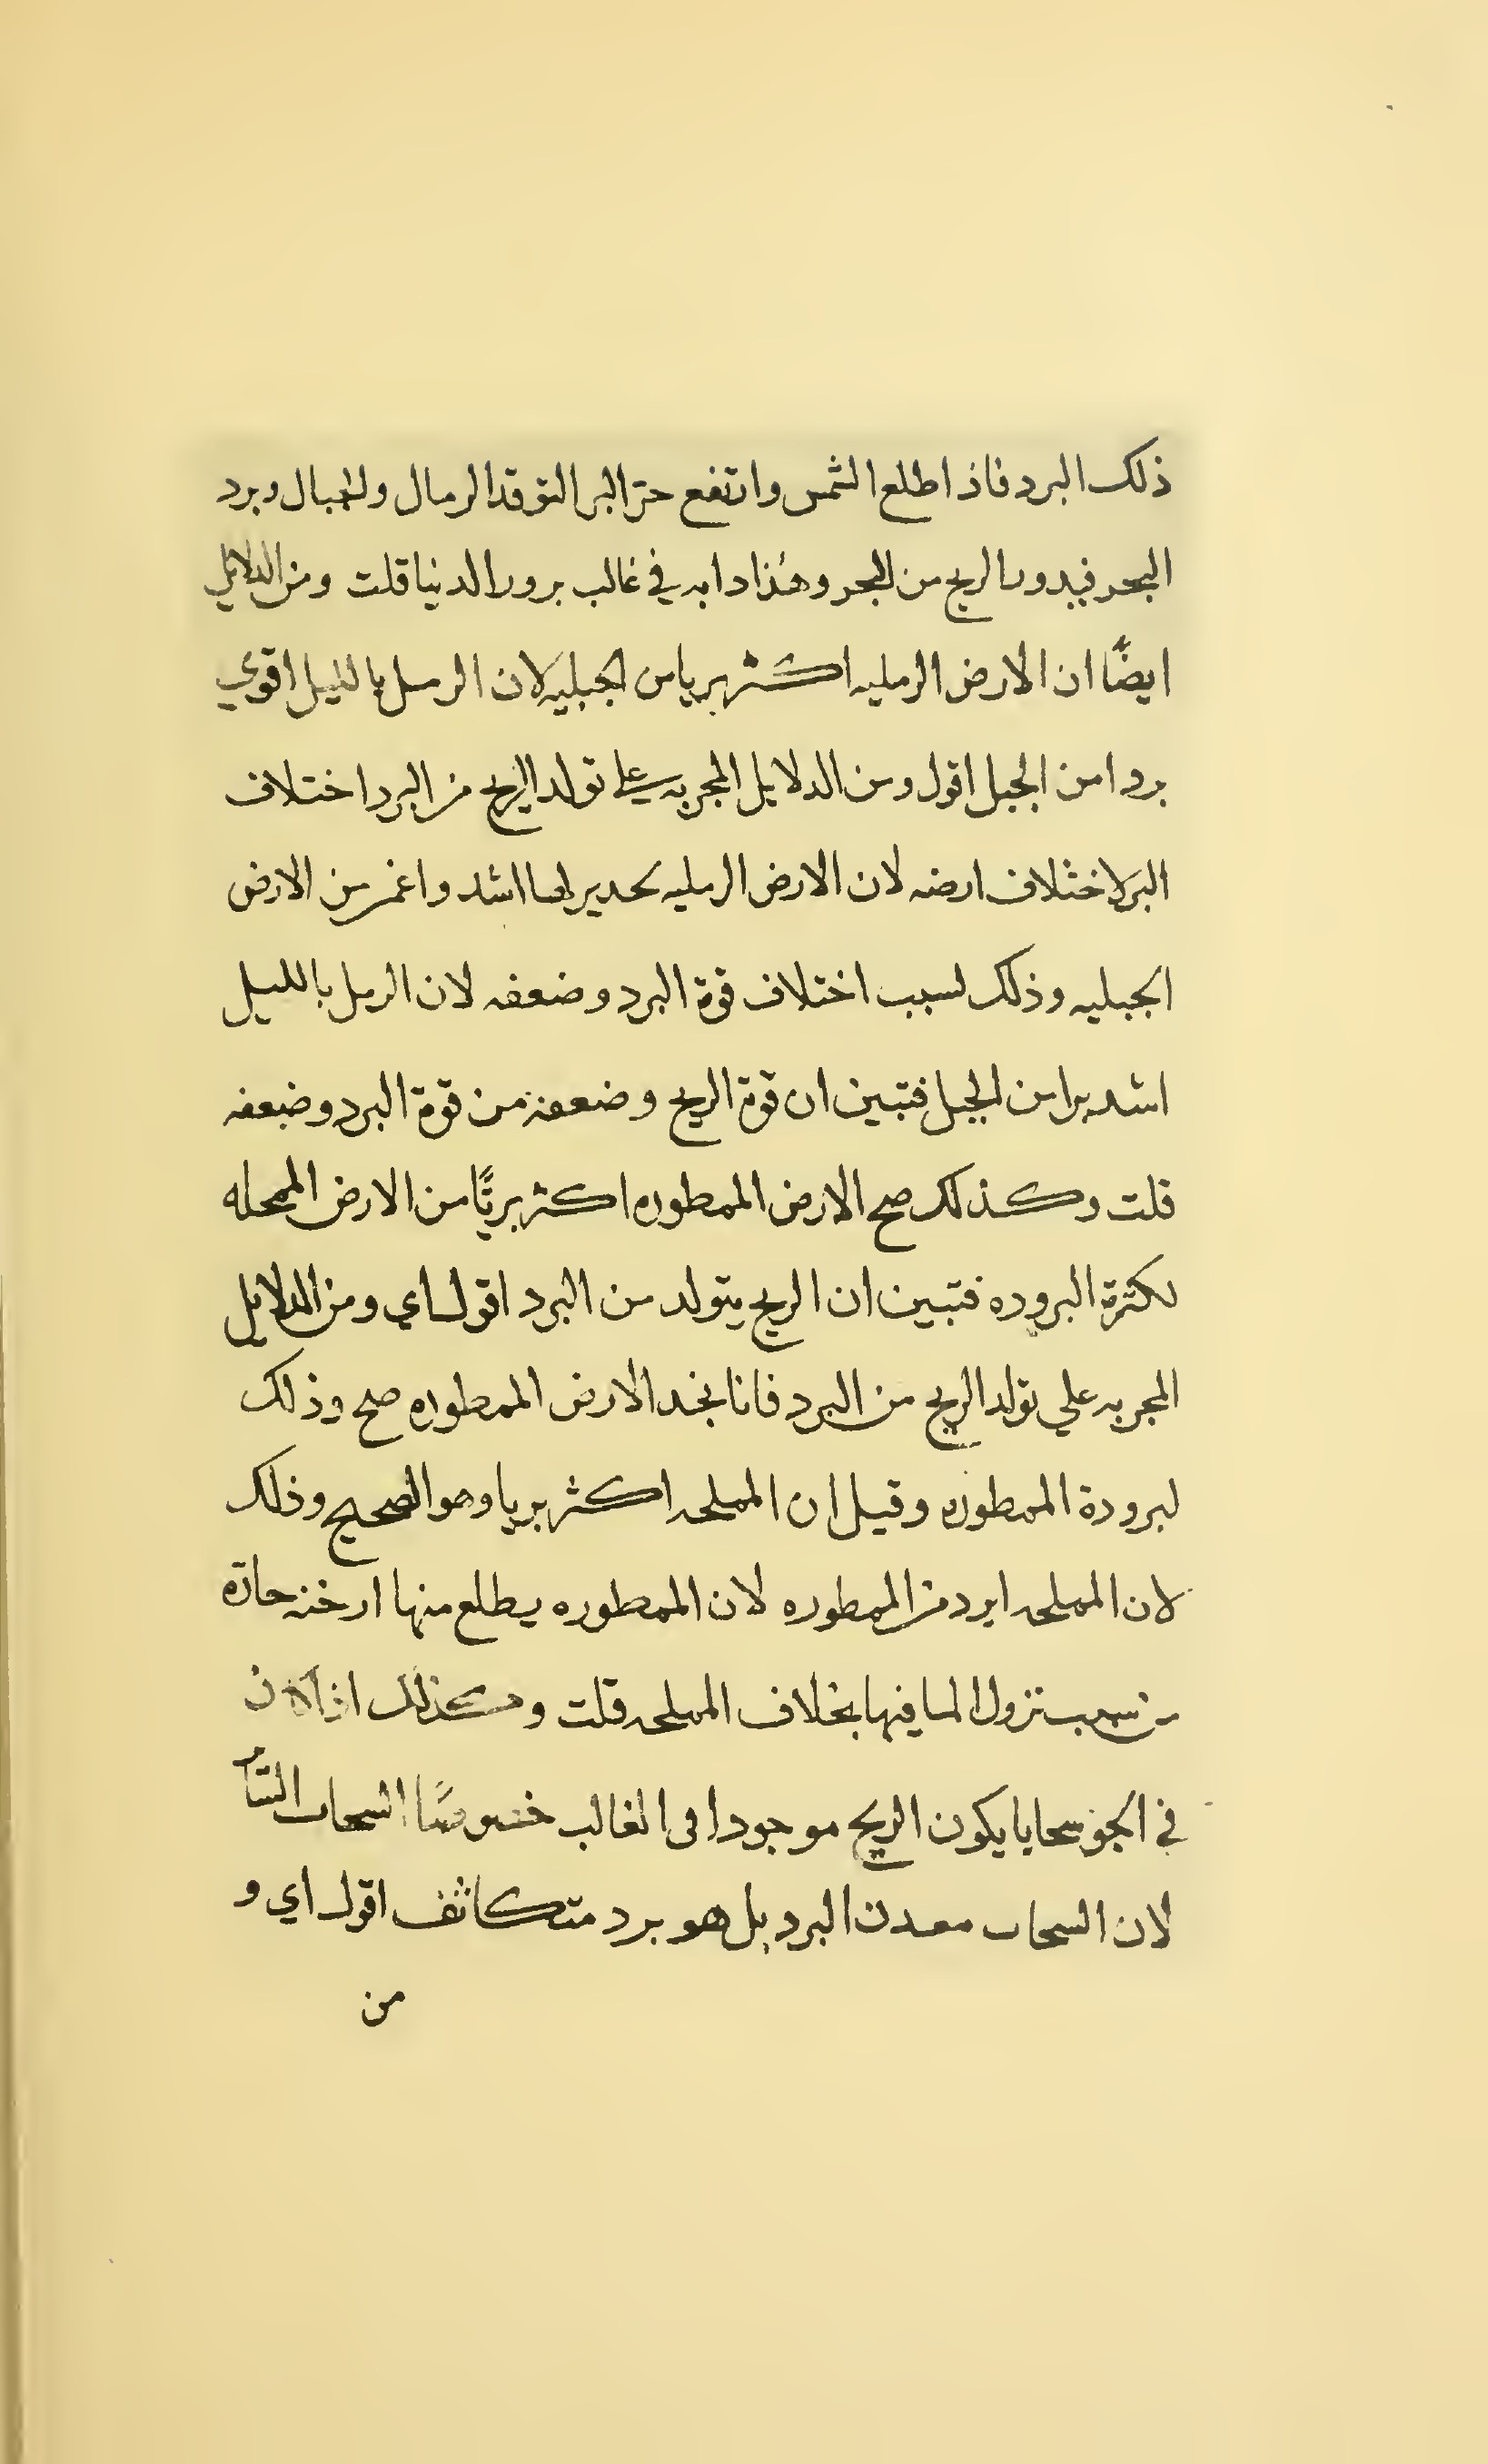 ذلك البرد فاذ اطلع الشمس وارتفع حرّ البر التوقد الرمال والجبال وبرد
البحر فيدور الريح من البحر وهذا دابه في غالب برور الدنيا قلت ومن الدلايل
ايضًا ان الارض الرمليه اكثر بريا من الجبليه لان الرمل بالليل اقوي
بردا من الجبل اقول ومن الدلايل المجربه علي تولد الريح من البرد اختلاف
البر لاختلاف ارضه لان الارض الرمليه اشد واغمر من الارض
الجبليه وذلك لسبب اختلاف قوة البرد وضعفه لان الرمل بالليل
اشد برا من الجبل فتبين ان قوة الريح وضعفه من قوة البرد وضعفه
قلت وكذلك صح الارض الممطوره اكثر بريًّا من الارض الممحله
لكثرة البروده فتبين ان الريح يتولد من البرد اقول اي ومن الدلايل
المجربه علي تولد الريح من البرد فانا نجد الارض الممطوره صح وذلك
لبرودة الممطوره وقيل ان الممحله اكثر بريا وهو الصحيح وذلك
لان الممحله ابرد من الممطوره لان الممطوره يطلع منها ارخنه حارّه
من سبب نزول الما فيها بخلاف الممحله قلت وكذلك اذا كان
في الجو سحابا يكون الريح موجودا في الغالب خصوصًا السحاب
لان السحاب معدن البرد بل هو برد متكاثف اقول اي و
من